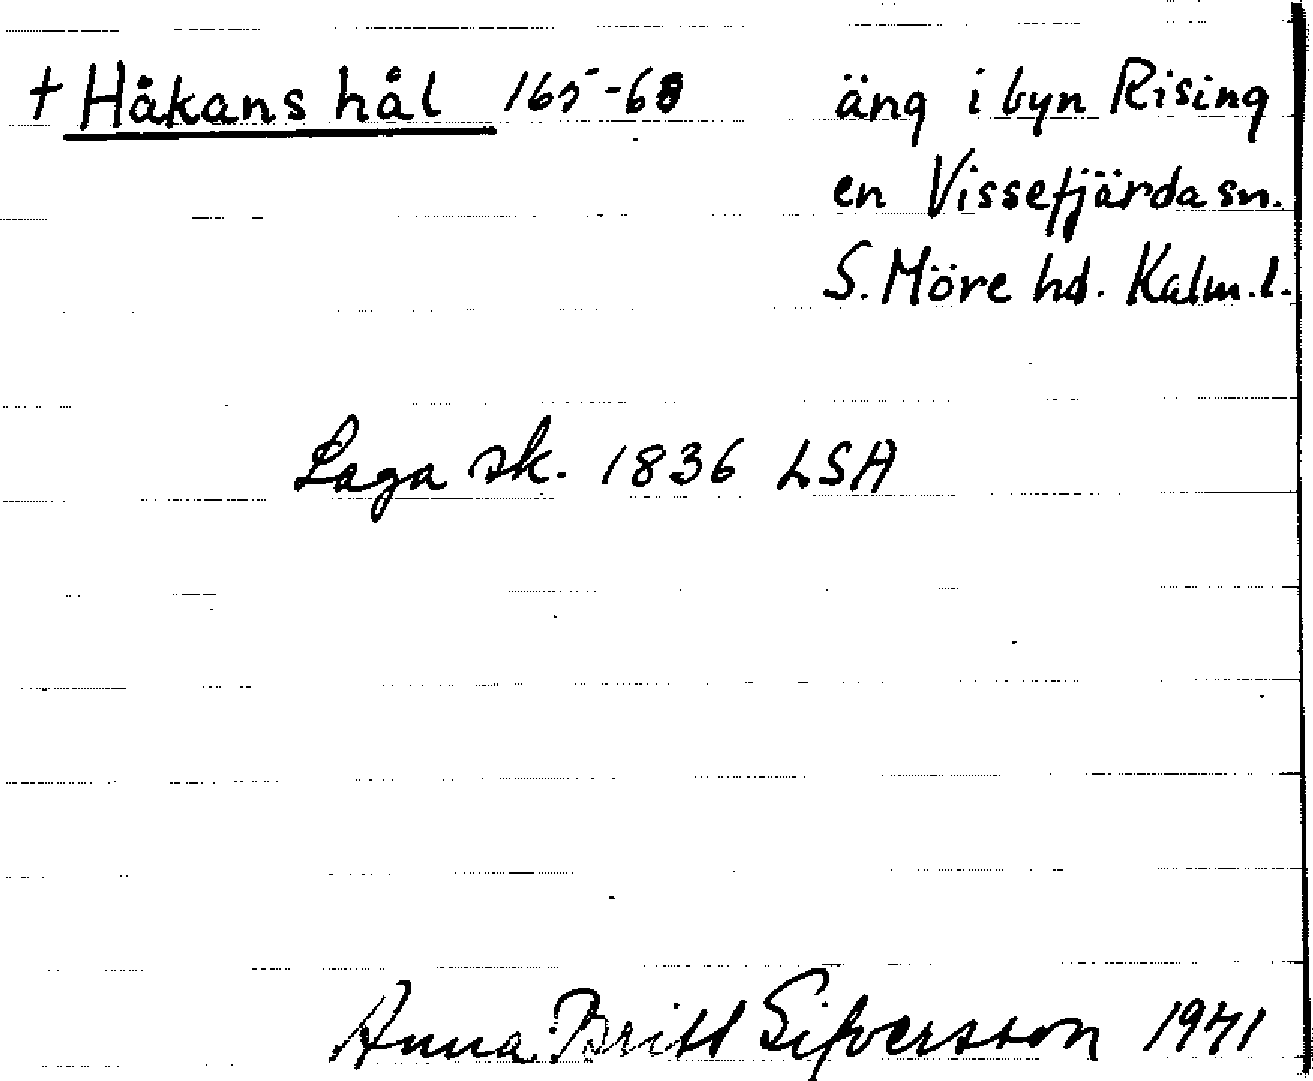 † Håkans hål 165-68 äng i byn Rising
en Vissefjärda sn.
S. Möre hd. Kalm. l.
Laga sk. 1836 LSA
Anna Britt Sifversson 1941